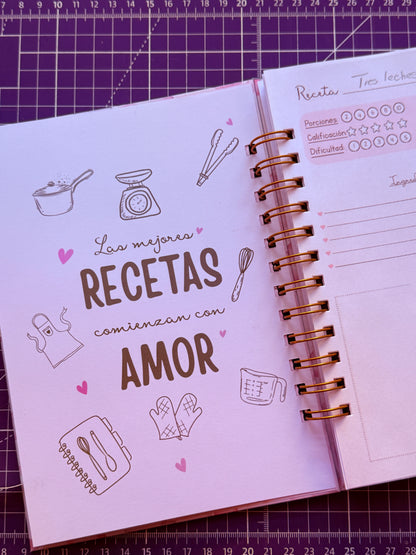 Las mejores
RECETAS
comienzan con
AMOR
Receta Tres leches
Porciones: 2 4 6 8 10
Calificación:
Dificultad: 1 2 3 4 5